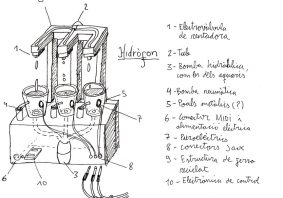 Hidròfon
1 - Electrovàlvula
de rentadora
2 - Tub
3 - Bomba hidràulica,
com les dels aquaris
4 - Bomba pneumàtica
5 - Poals metàl·lics (?)
6 - Connector Midi i
alimentació elèctrica
7 - Piezoelèctrics
8 - connectors Jack
9 - Estructura de ferro
reciclat
10 - Electrònica de control
1
2
3
4
5
6
7
8
9
10